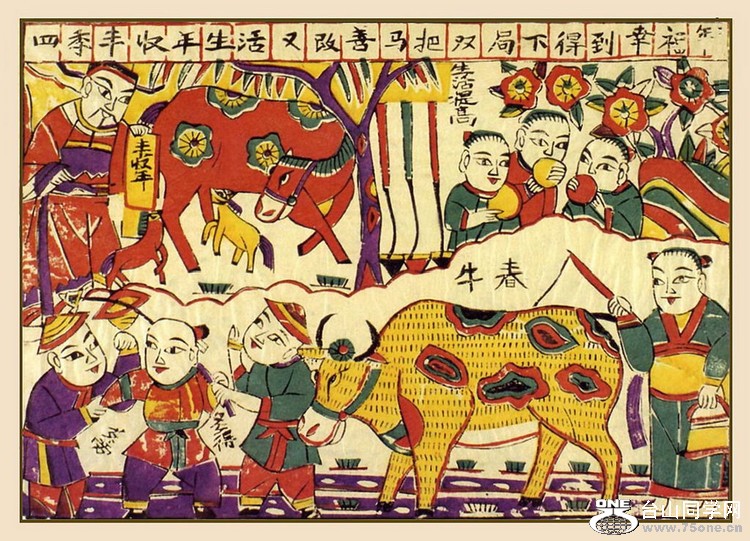 四季丰収年生活又改善马把双局下得到幸福年
生活提高
丰収年
春牛
ONE
台山同学网
www.75one.cn